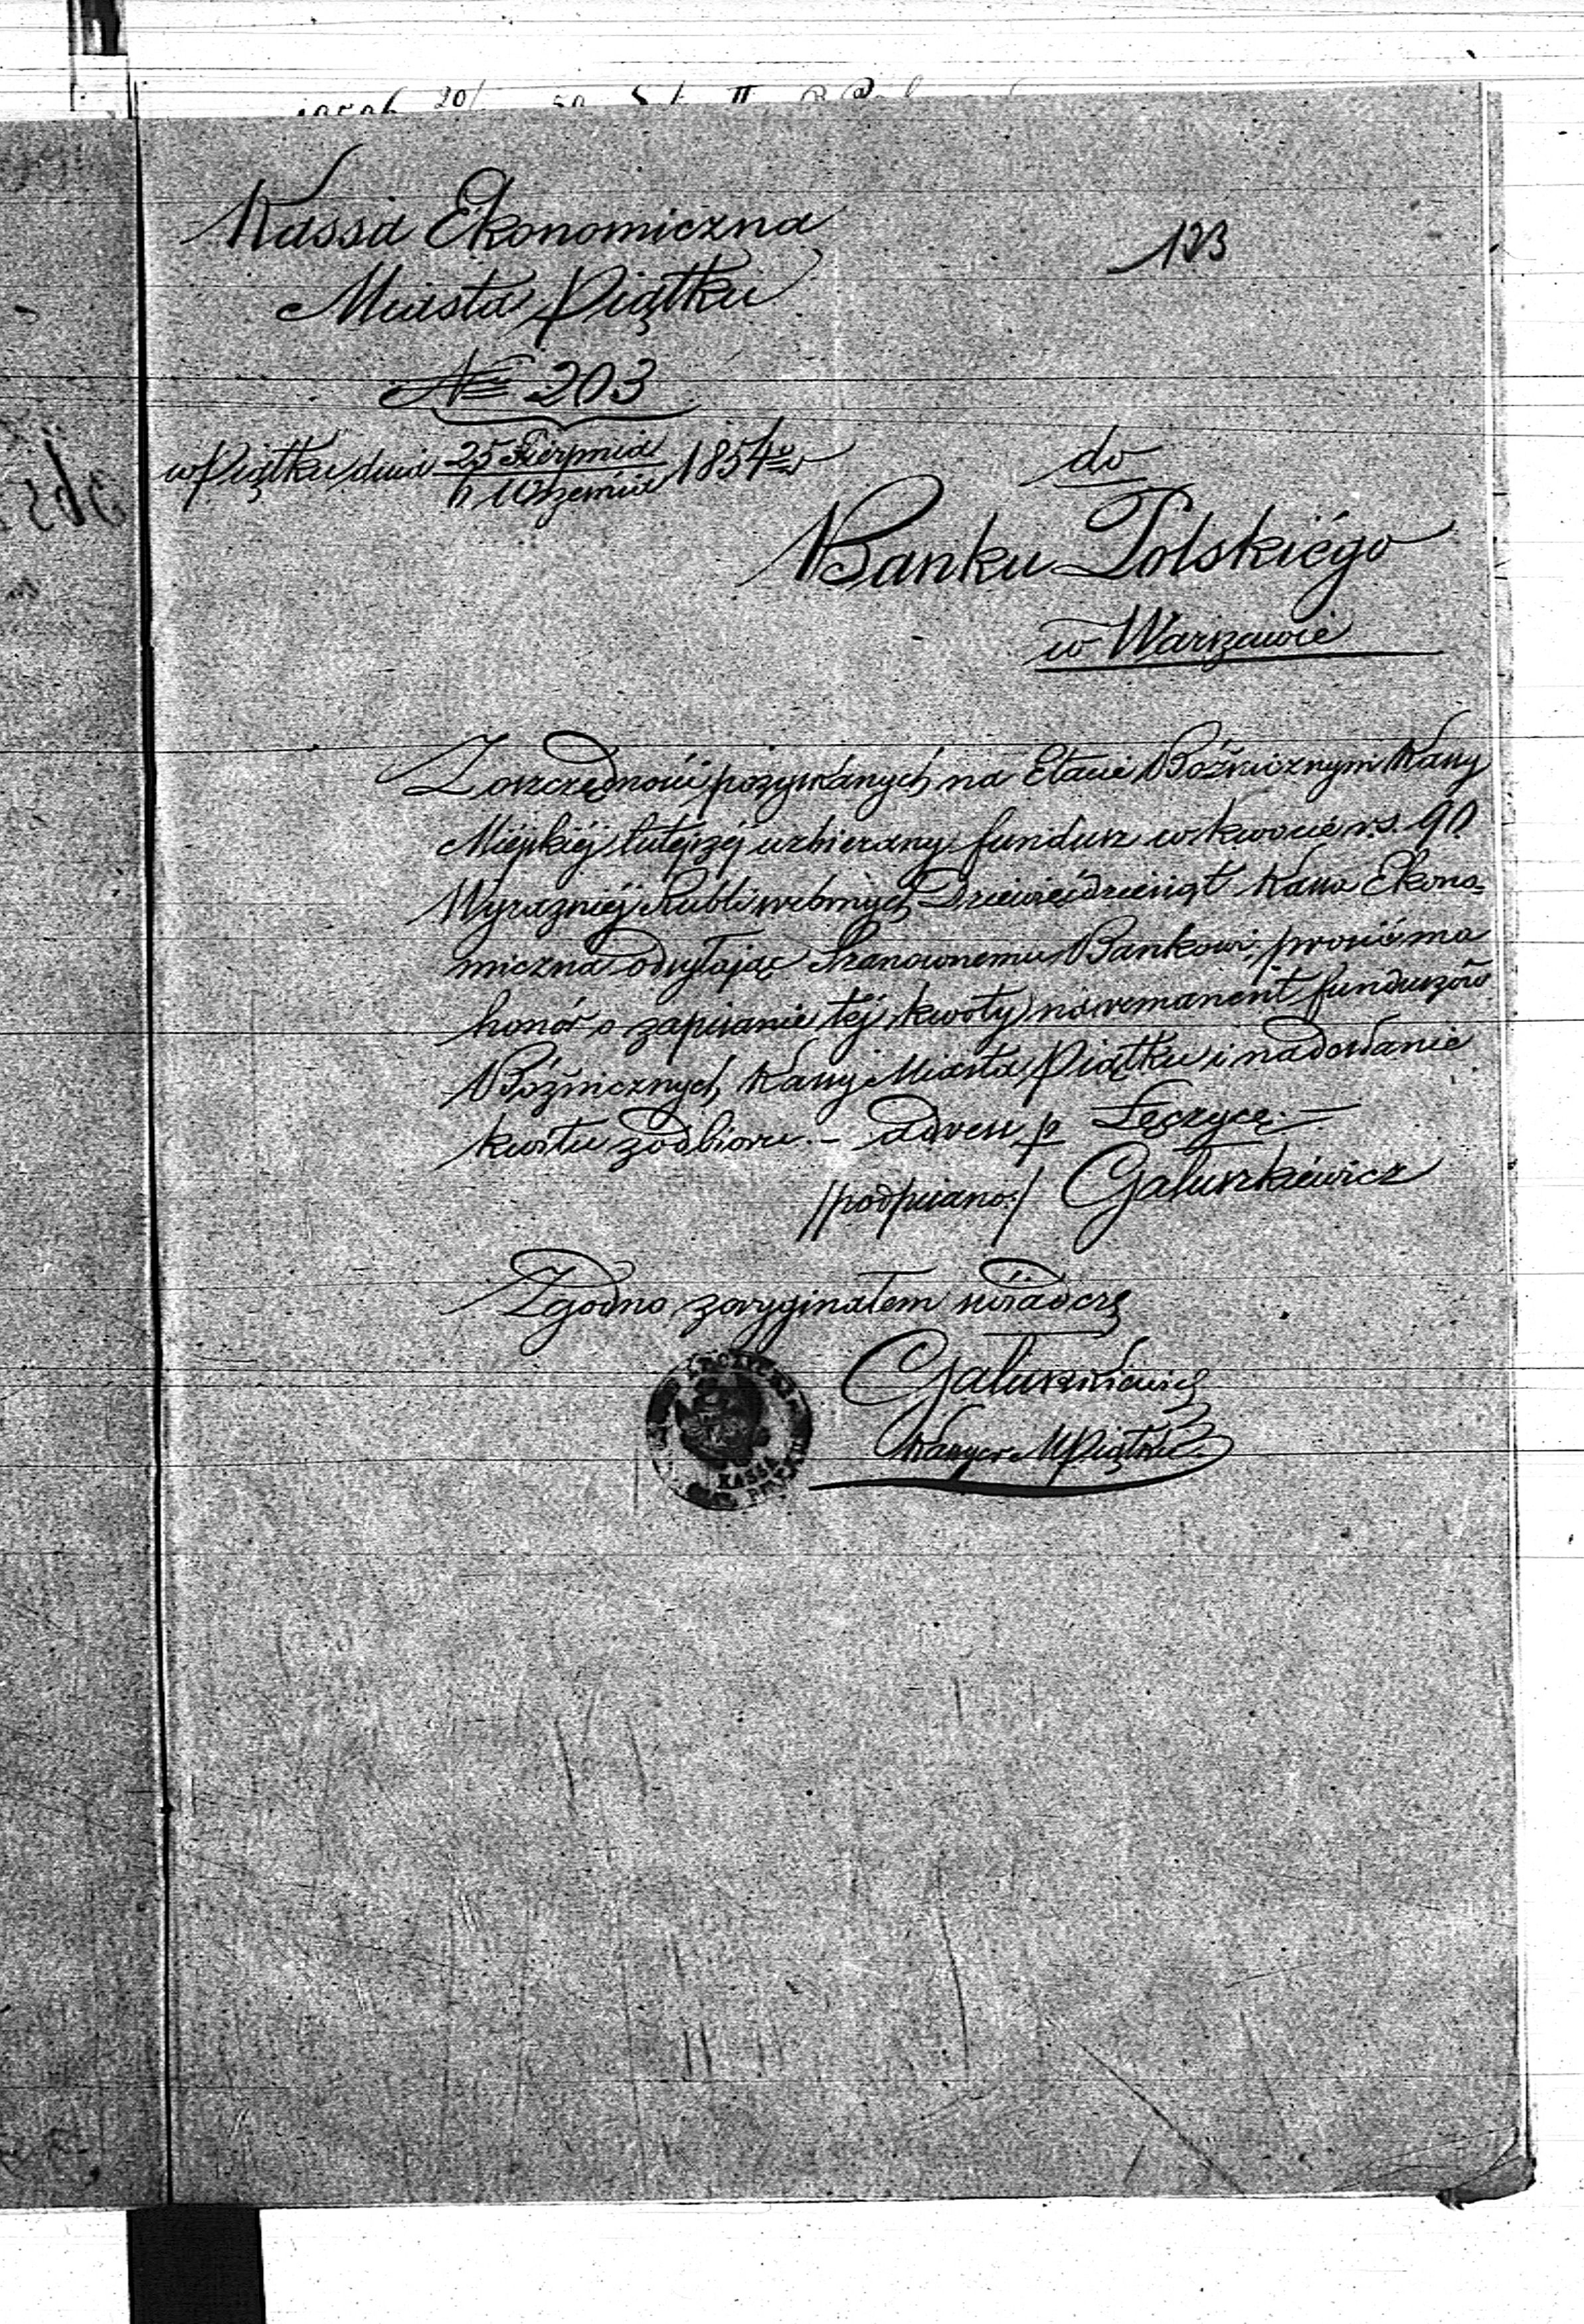 Kassa Ekonomiczna
Miasta Piątku
123
№ 203
w Piątku dnia 25 Sierpnia / 6 Września 1854 r
do
Banku Polskiégo
w Warszawie
Z oszczędności pozyskanych na Etacie Bóźnicznym Kassy
Miejskiéj tutejszéj uzbierany fundusz w kwocie r.s. 90
Wyrazniéj Rubli srebrnych Dziewięćdziesiąt Kassa Ekono-
miczna odsyłając Szanownemu Bankowi, prosić ma
honór o zapisanie téj kwoty na remanent funduszów
Bóżnicznych Kassy Miasta Piątku i nadesłanie
kwitu z odbioru. – adress p Łęczycę. –
/podpisano:/ Galuszkiewicz
Zgodno z oryginałem świadczę
Galuszkiewicz
Kassyer M Piątku
KASSA